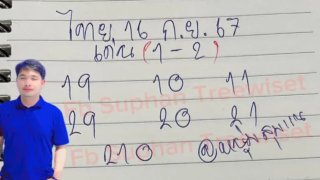 ไทย 16 ก.ย. 67
เด่น (1-2)
19 10 11
29 20 21
210
Fb Suphan Treewiset
Fb Suphan Treewiset